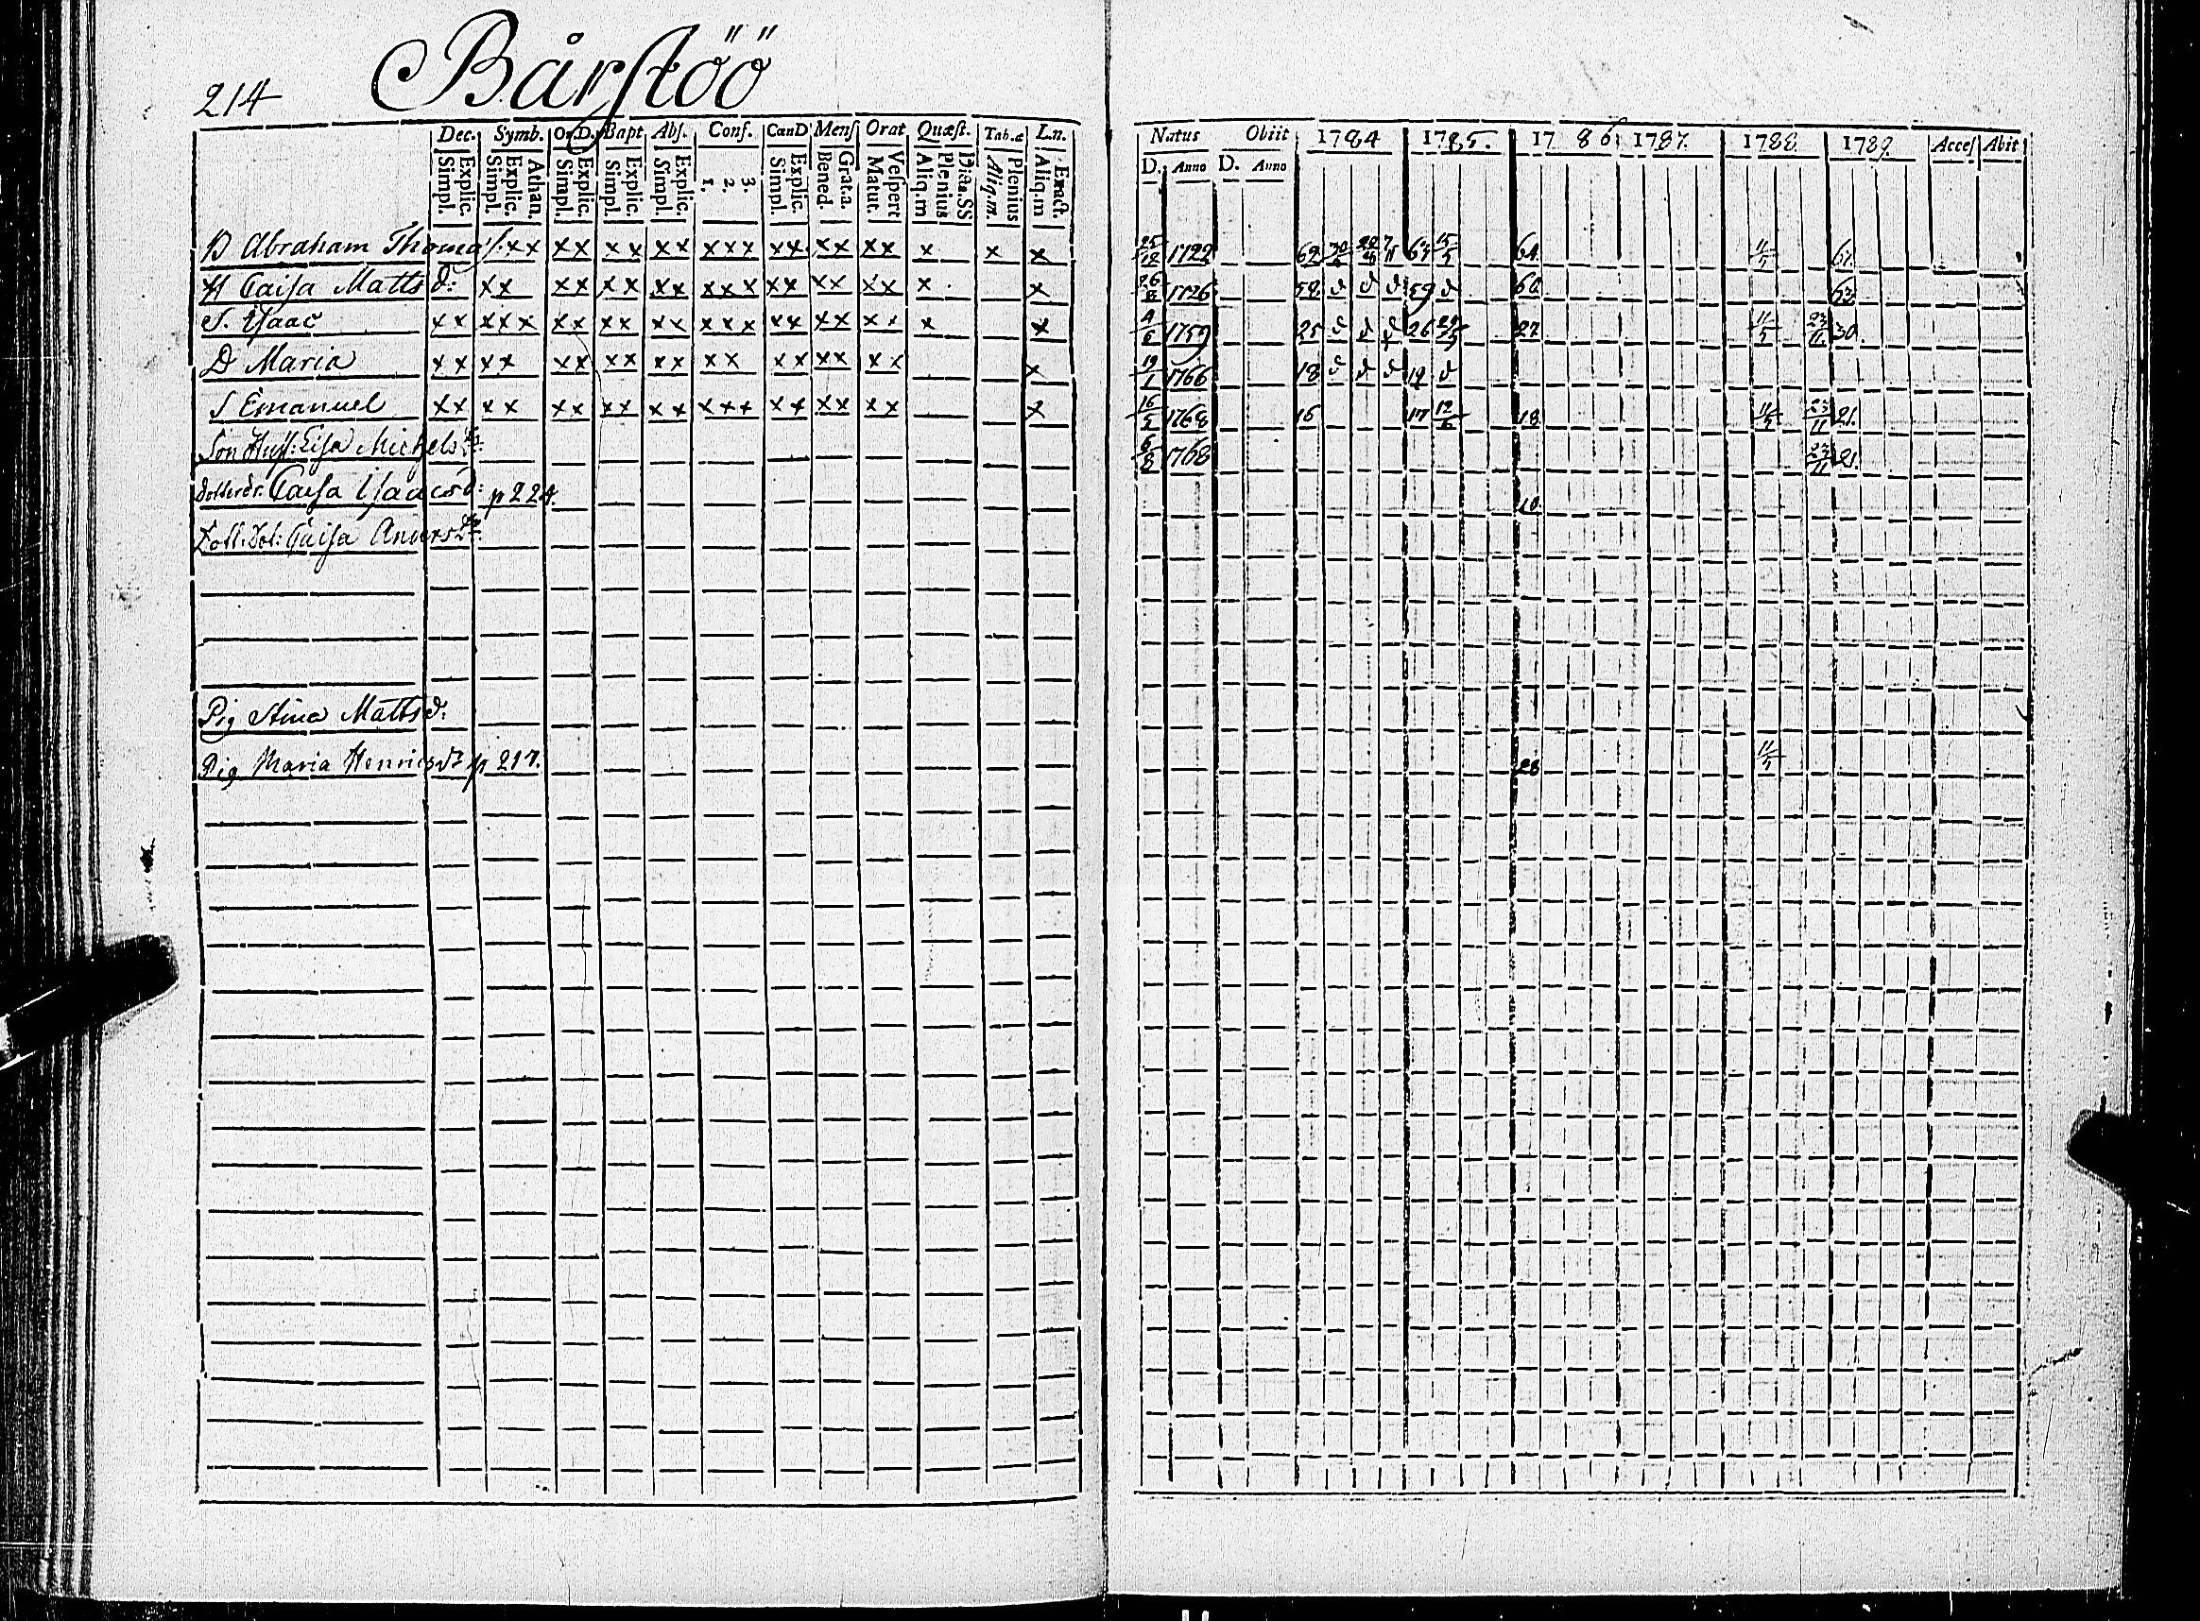 214 Bårstöö
Dec. Symb. Or.D. Bapt Abſ. Conf. CanD Menſ Orat Quæſt. Tab.æ L.n.
Simpl. Explic. Simpl. Explic. Athan. Simpl. Explic. Simpl. Explic. Simpl. Explic. 1. 2. 3. Simpl. Explic. Bened. Grat.a. Matut. Veſpert Aliq.m Plenius Aliq.m. Plenius Aliq.m Exact.
Natus Obiit 1784 1785. 17 86 1787. 1788. 1789. Acceſ Abit
D. Anno D. Anno
B Abraham Thomaſ. x x x x x x x x x x x x x x x x x x x x 25/12 1722 62 64
H Caiſa Matts d: x x x x x x x x x x x x x x x x x x x 26/8 1726 58 d d d 59 d 60 63
S. Iſaac x x x x x x x x x x x x x x x x x x x x x x 4/6 1759 25 d d d 26 27 11/5 23/11 30
D Maria x x x x x x x x x x x x x x x x x x x 19/1 1766 18 d d d 19 d
S Emanuel x x x x x x x x x x x x x x x x x x x x 16/5 1768 16 17 12/6 18 11/5 23/11 21.
Son Huſt: Liſa Michels dr. 6/8 1768 23/11 21.
Dotterdr. Caiſa Iſaacs d: p 224. 10
Dott. Dot: Caiſa Anders dr.
Pig Stina Matts d:
Pig Maria Henrics dr p 217. 28 11/5